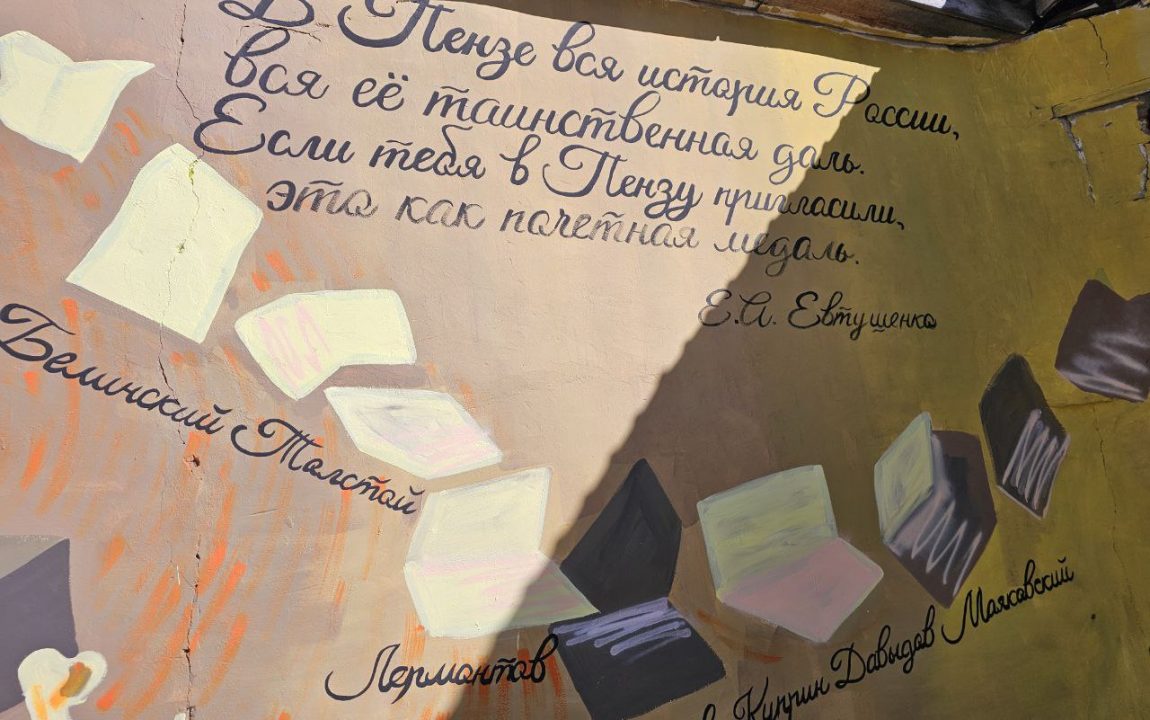 В Пензе вся история России,
вся её таинственная даль.
Если тебя в Пензу пригласили,
это как почетная медаль.
Е.А. Евтушенко
Белинский Толстой
Лермонтов
Куприн Давыдов Маяковский